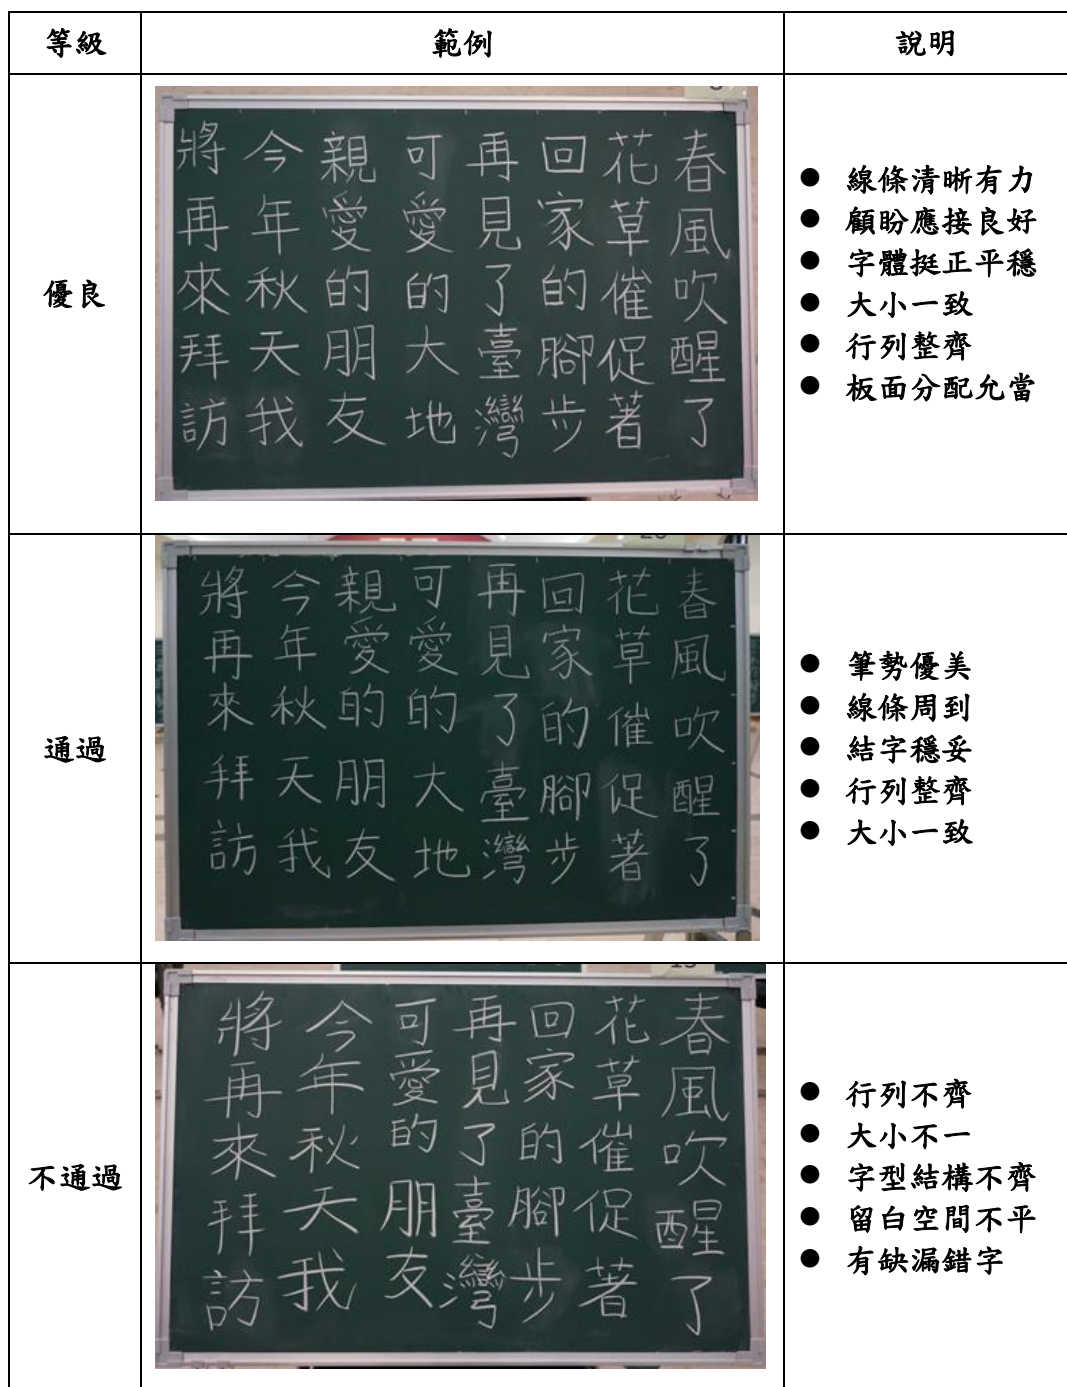 等級
範例
說明
優良
春風吹醒了
花草催促著
回家的腳步
再見了臺灣
可愛的大地
親愛的朋友
今年秋天我
將再來拜訪
● 線條清晰有力
● 顧盼應接良好
● 字體挺正平穩
● 大小一致
● 行列整齊
● 板面分配允當
通過
春風吹醒了
花草催促著
回家的腳步
再見了臺灣
可愛的大地
親愛的朋友
今年秋天我
將再來拜訪
● 筆勢優美
● 線條周到
● 結字穩妥
● 行列整齊
● 大小一致
不通過
春風吹醒了
花草催促著
回家的腳步
再見了臺灣
可愛的朋友
今年秋天我
將再來拜訪
● 行列不齊
● 大小不一
● 字型結構不齊
● 留白空間不平
● 有缺漏錯字